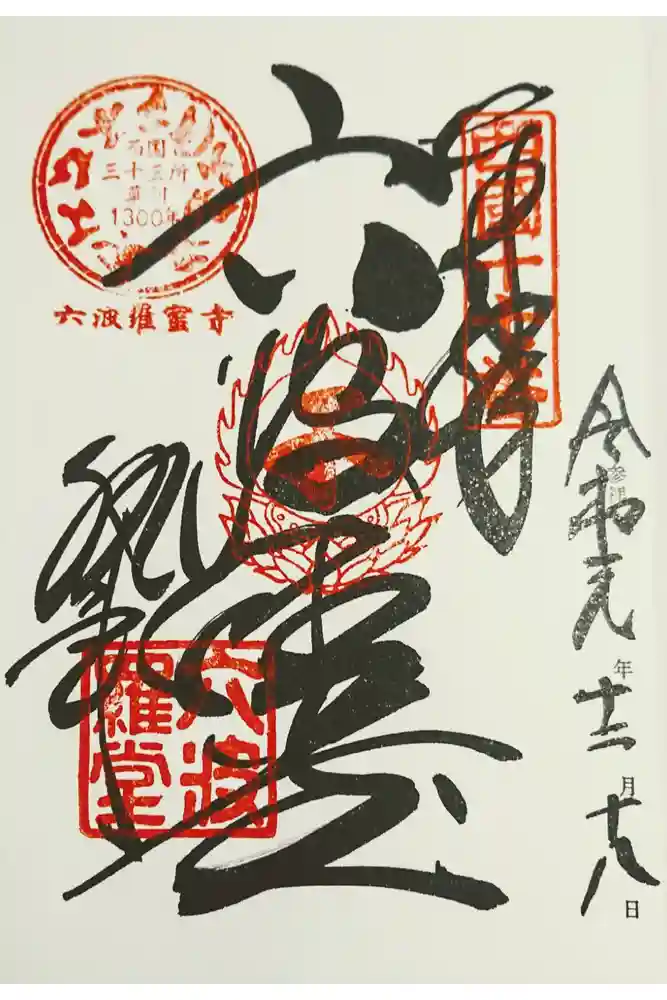 西国
三十三所
草創
1300年
六波羅蜜寺
奉拝
六波羅堂
令和元年十二月十八日
六波
羅堂